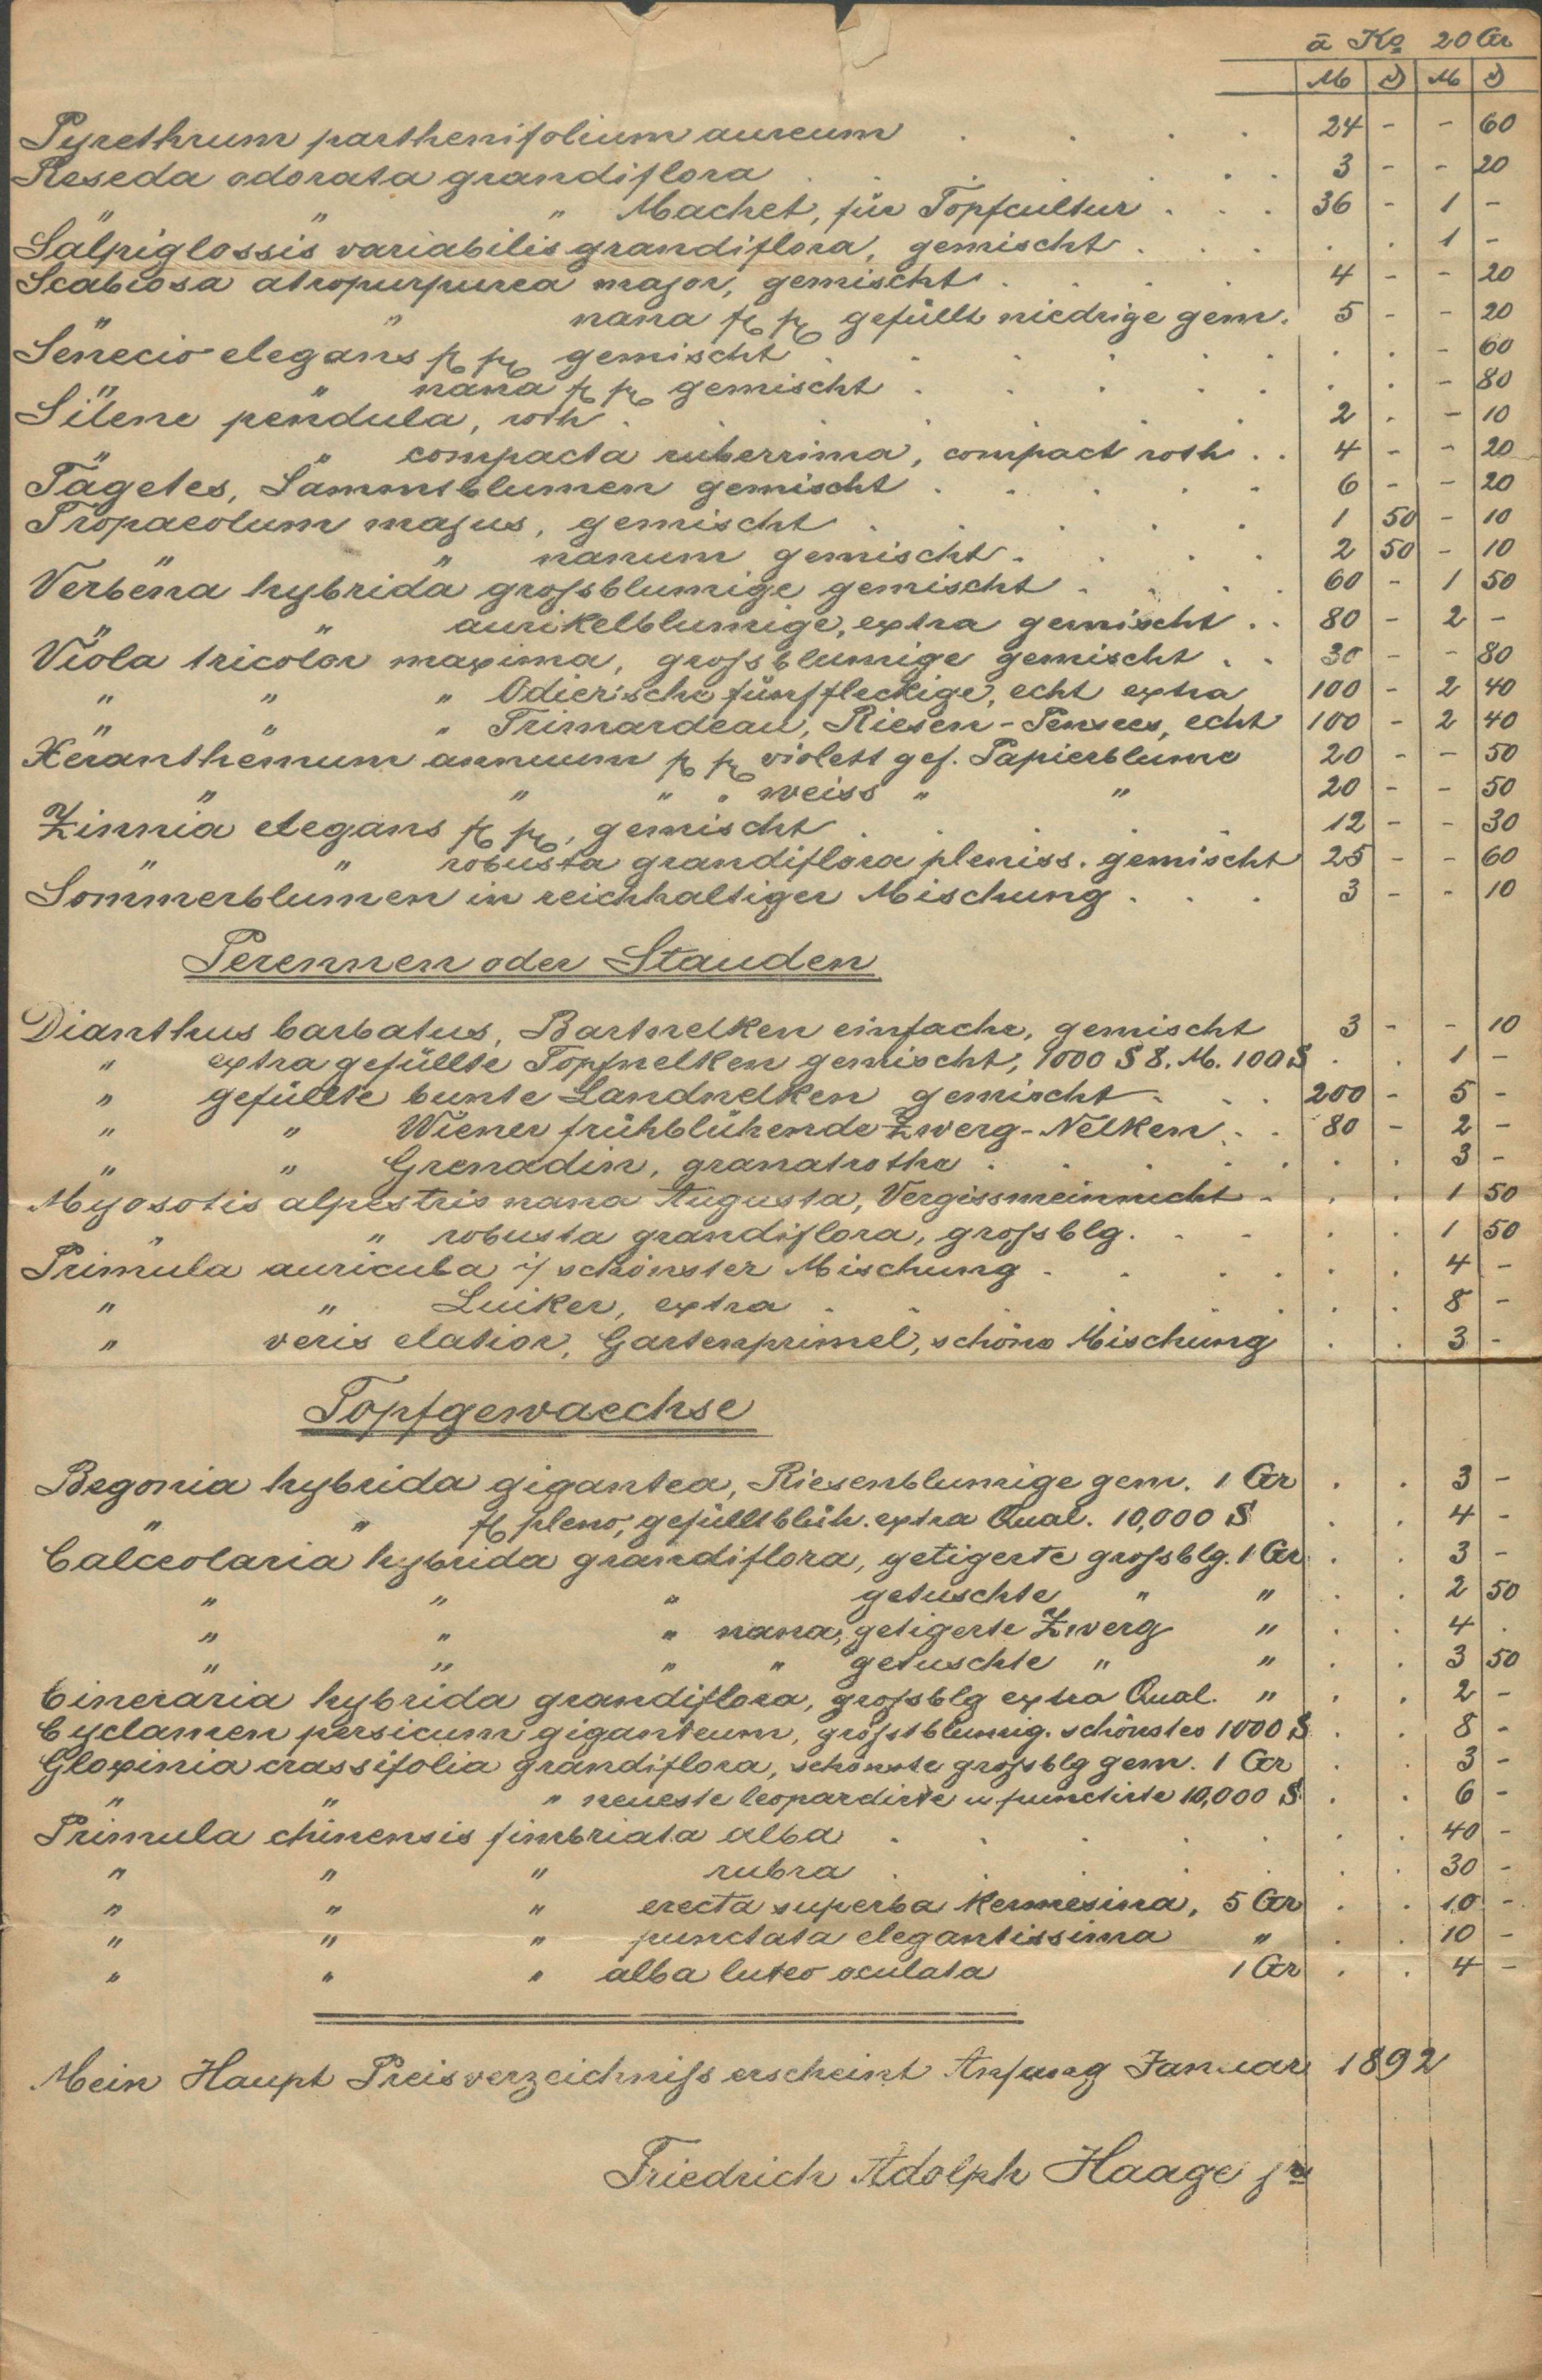 à Ko 20 Gr
M | D | M | D
Pyrethrum parthenifolium aureum . . . . 24 - - 60
Reseda odorata grandiflora . . . . . . 3 - - 20
" " " Machet, für Topfcultur . . . 36 - 1 -
Salpiglossis variabilis grandiflora, gemischt . . . . . 1 -
Scabiosa atropurpurea major, gemischt . . . . 4 - - 20
" " nana fl pl gefüllt niedrige gem. 5 - - 20
Senecio elegans fl pl gemischt . . . . . . . . - 60
" " nana fl pl gemischt . . . . . . . - 80
Silene pendula, roth . . . . . 2 . - 10
" " compacta ruberrima, compact roth . . 4 - - 20
Tagetes, Sammtblumen gemischt . . . . . 6 - - 20
Tropaeolum majus, gemischt . . . . . 1 50 - 10
" " nanum gemischt . . . . 2 50 - 10
Verbena hybrida grossblumige gemischt . . . . 60 - 1 50
" " aurikelblumige, extra gemischt . . 80 - 2 -
Viola tricolor maxima, grossblumige gemischt . . 30 - - 80
" " " Odier'sche fünffleckige, echt extra 100 - 2 40
" " " Trimardeau, Riesen-Pensees, echt 100 - 2 40
Xeranthemum annuum fl pl violett gef. Papierblume 20 - - 50
" " " " weiss " " 20 - - 50
Zinnia elegans fl pl, gemischt . . . . . 12 - - 30
" " robusta grandiflora pleniss. gemischt 25 - - 60
Sommerblumen in reichhaltiger Mischung . . . 3 - - 10
Perennen oder Stauden
Dianthus barbatus, Bartnelken einfache, gemischt 3 - - 10
" extra gefüllte Topfnelken gemischt, 1000 S 8. M. 100 S . . 1 -
" gefüllte bunte Landnelken gemischt . . . 200 - 5 -
" " Wiener frühblühende Zwerg-Nelken . . 80 - 2 -
" " Grenadin, granatrothe . . . . . . . 3 -
Myosotis alpestris nana Augusta, Vergissmeinnicht . . . 1 50
" " robusta grandiflora, grossblg. . . . . 1 50
Primula auricula i/ schönster Mischung . . . . . . 4 -
" " Luiker, extra . . . . . . . 8 -
" veris elatior, Gartenprimel, schöne Mischung . . 3 -
Topfgewaechse
Begonia hybrida gigantea, Riesenblumige gem. 1 Gr . . 3 -
" " fl pleno, gefülltblüh. extra Qual. 10,000 S . . 4 -
Calceolaria hybrida grandiflora, getigerte grossblg. 1 Gr . . 3 -
" " " getuschte " " . . 2 50
" " " nana, getigerte Zwerg " . . 4 .
" " " " getuschte " " . . 3 50
Cineraria hybrida grandiflora, grossblg extra Qual. " . . 2 -
Cyclamen persicum giganteum, grösstblumig. schönstes 1000 S . . 8 -
Gloxinia crassifolia grandiflora, schönste grossblg gem. 1 Gr . . 3 -
" " " neueste leopardirte u punctirte 10,000 S . . 6 -
Primula chinensis fimbriata alba . . . . . . 40 -
" " " rubra . . . . . . 30 -
" " " erecta superba kermesina, 5 Gr . . 10 -
" " " punctata elegantissima " . . 10 -
" " " alba luteo oculata 1 Gr . . 4 -
Mein Haupt Preisverzeichniss erscheint Anfang Januar 1892
Friedrich Adolph Haage jr